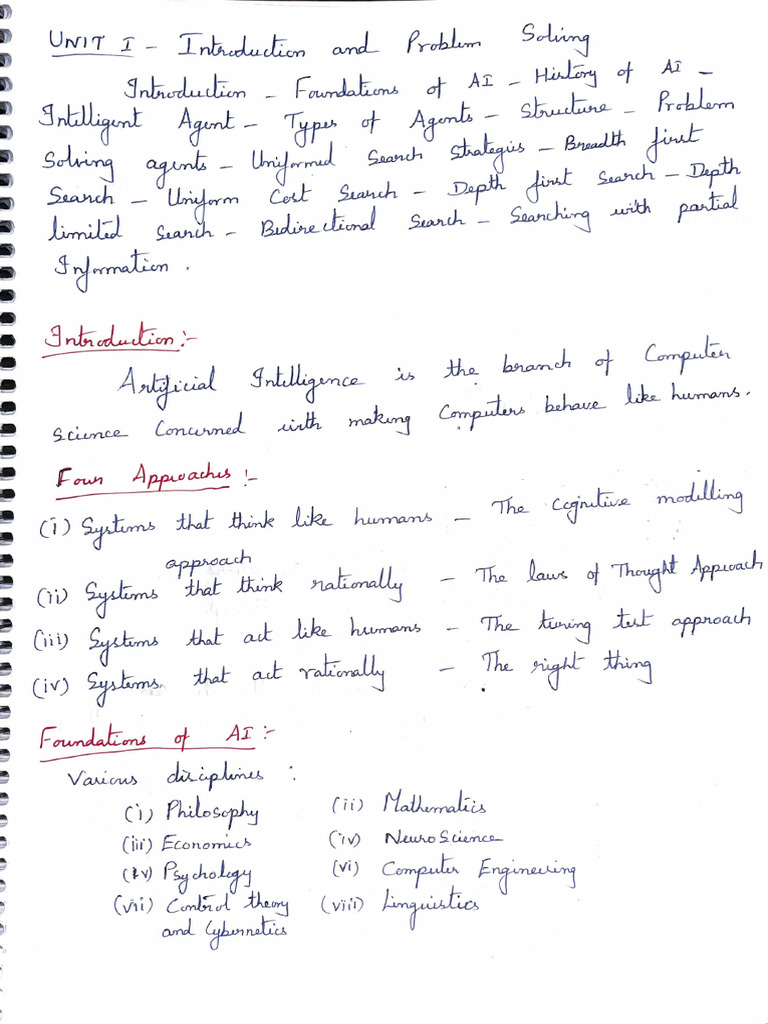 UNIT I - Introduction and Problem Solving
Introduction - Foundations of AI - History of AI -
Intelligent Agent - Types of Agents - Structure - Problem
Solving agents - Uniformed Search Strategies - Breadth first
Search - Uniform Cost Search - Depth first Search - Depth
limited Search - Bidirectional Search - Searching with partial
Information.
Introduction:-
Artificial Intelligence is the branch of Computer
Science Concerned with making Computers behave like humans.
Four Approaches:-
(i) Systems that think like humans - The cognitive modelling
approach
(ii) Systems that think rationally - The laws of Thought Approach
(iii) Systems that act like humans - The turing test approach
(iv) Systems that act rationally - The right thing
Foundations of AI:-
Various disciplines :
(i) Philosophy (ii) Mathematics
(iii) Economics (iv) NeuroScience
(v) Psychology (vi) Computer Engineering
(vii) Control theory (viii) Linguistics
and Cybernetics